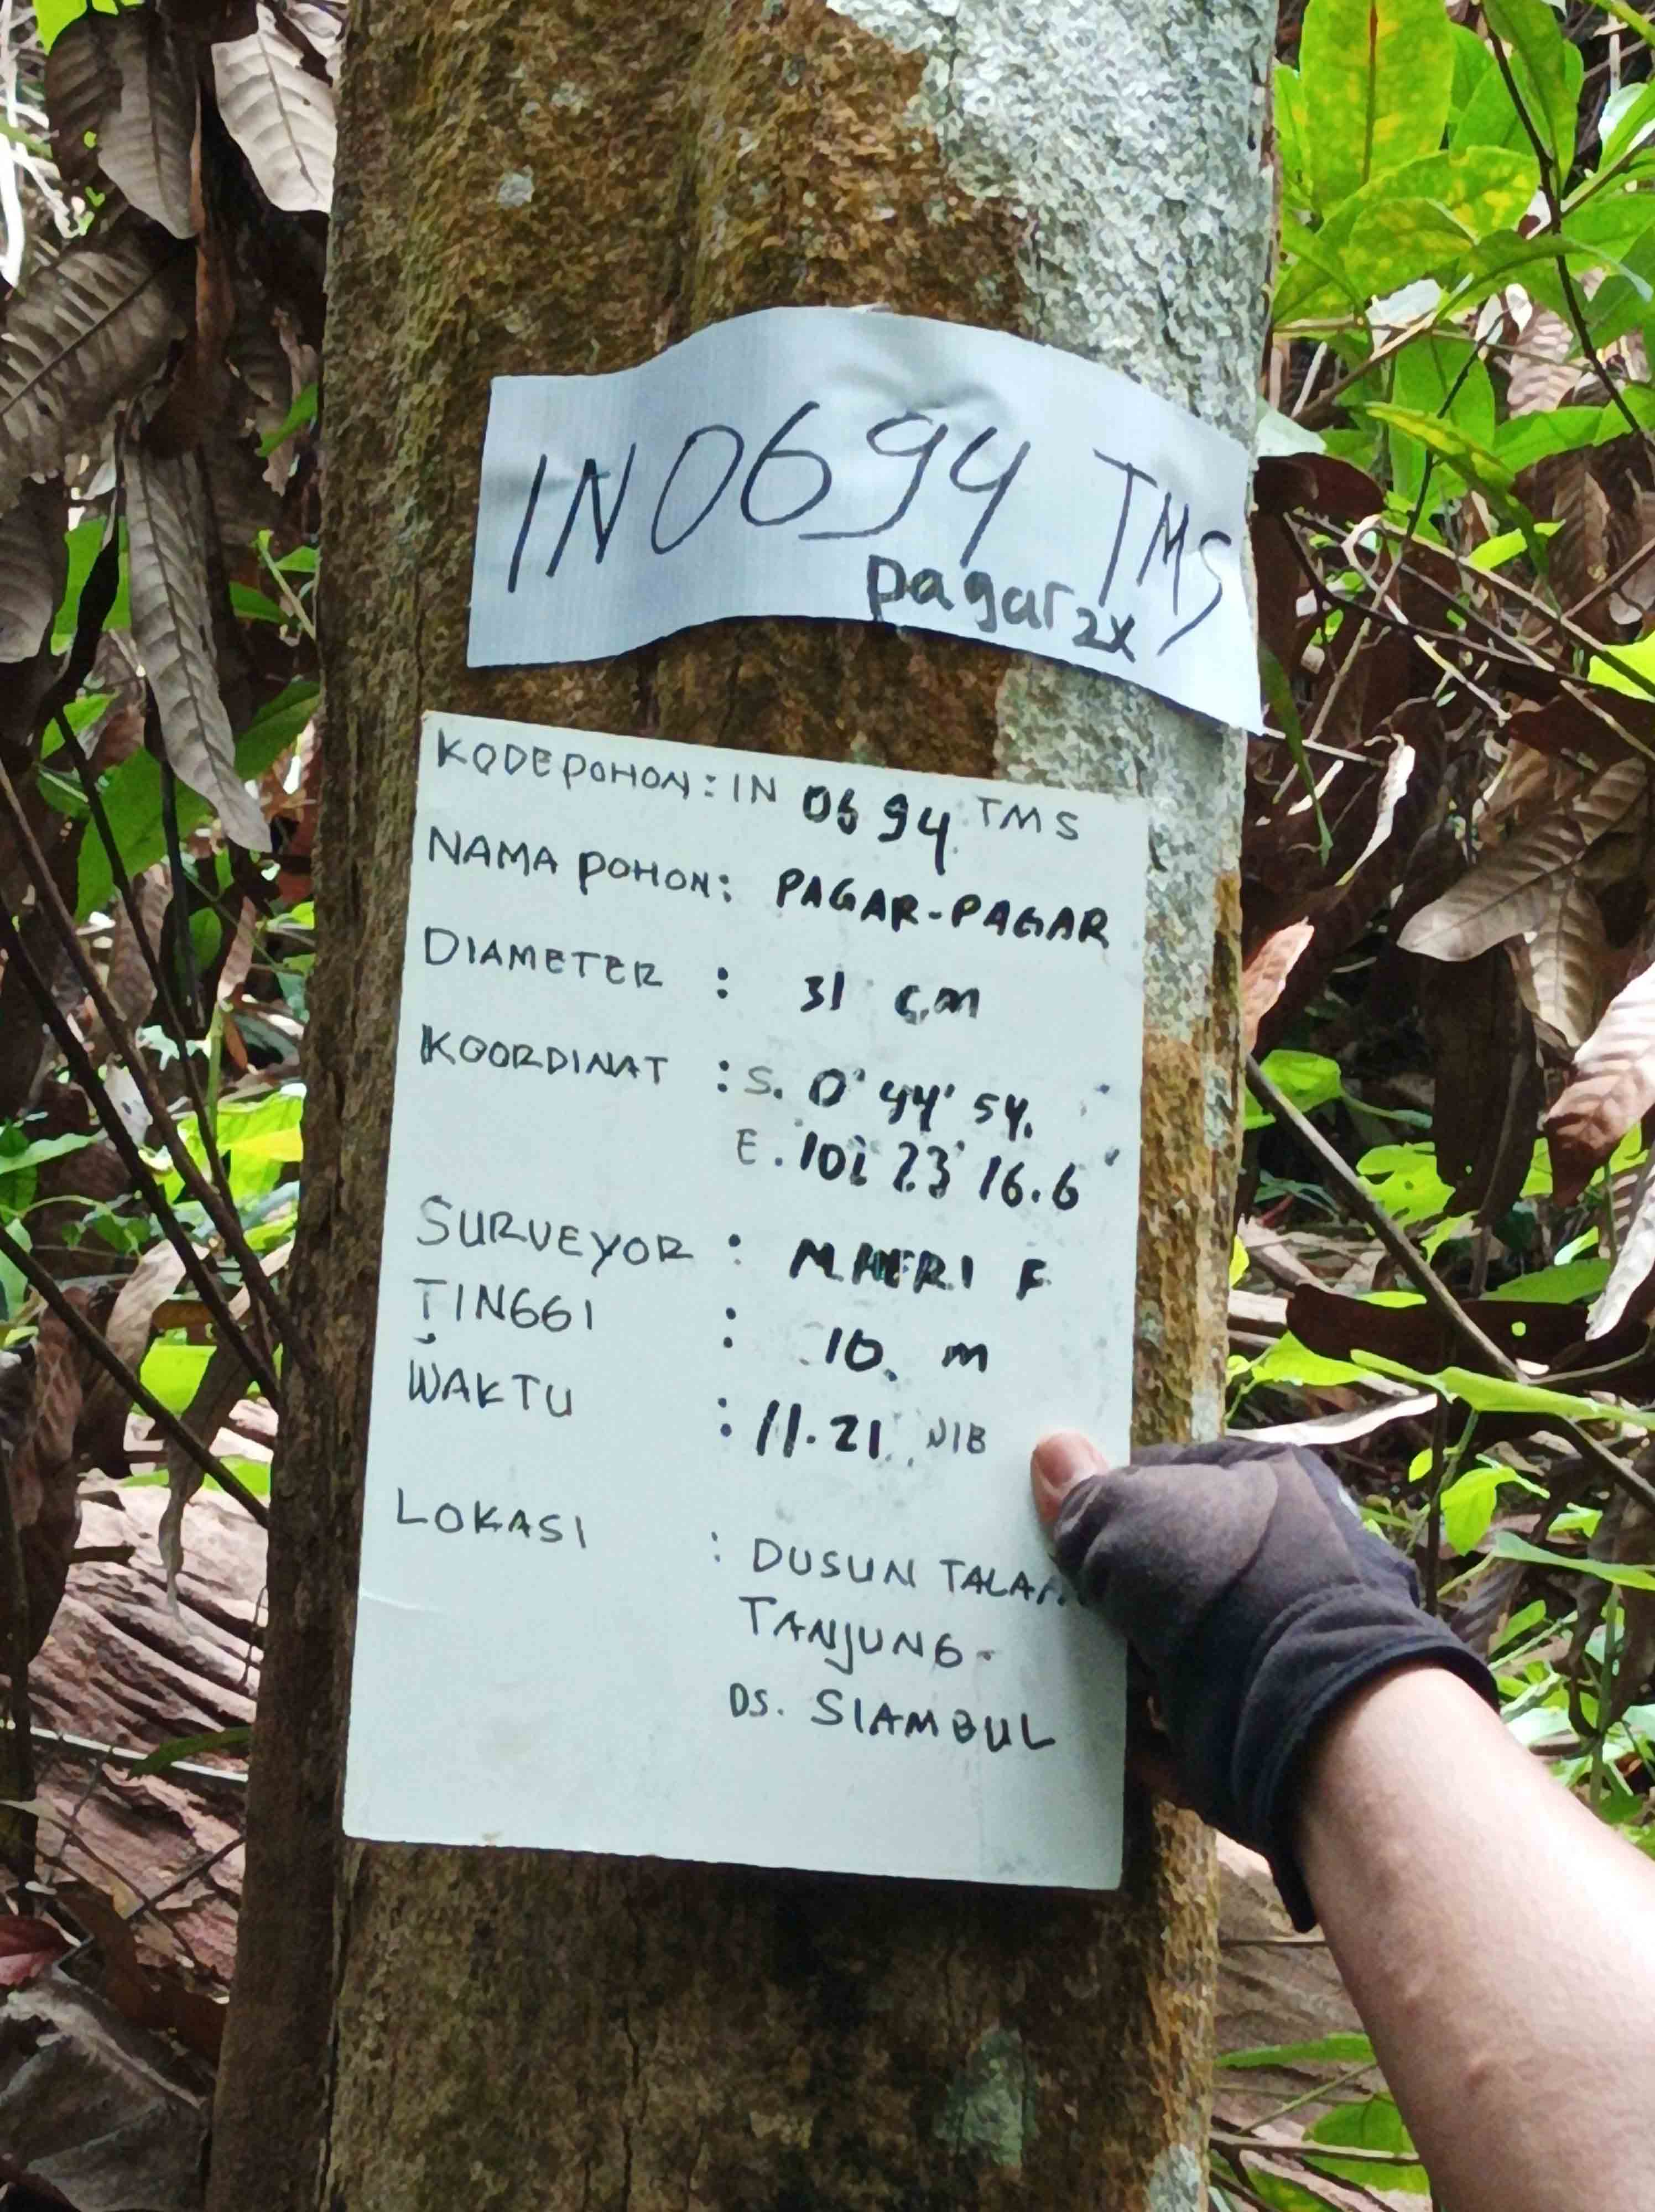 IN 0694 TMS
pagar2x
KODE POHON : IN 0694 TMS
NAMA POHON : PAGAR-PAGAR
DIAMETER : 31 cm
KOORDINAT : S. 0° 44' 54.
E. 102° 23' 16.6"
SURVEYOR : M.HERI F
TINGGI : 10. m
WAKTU : 11.21 WIB
LOKASI : DUSUN
TANJUNG-
DS. SIAMBUL